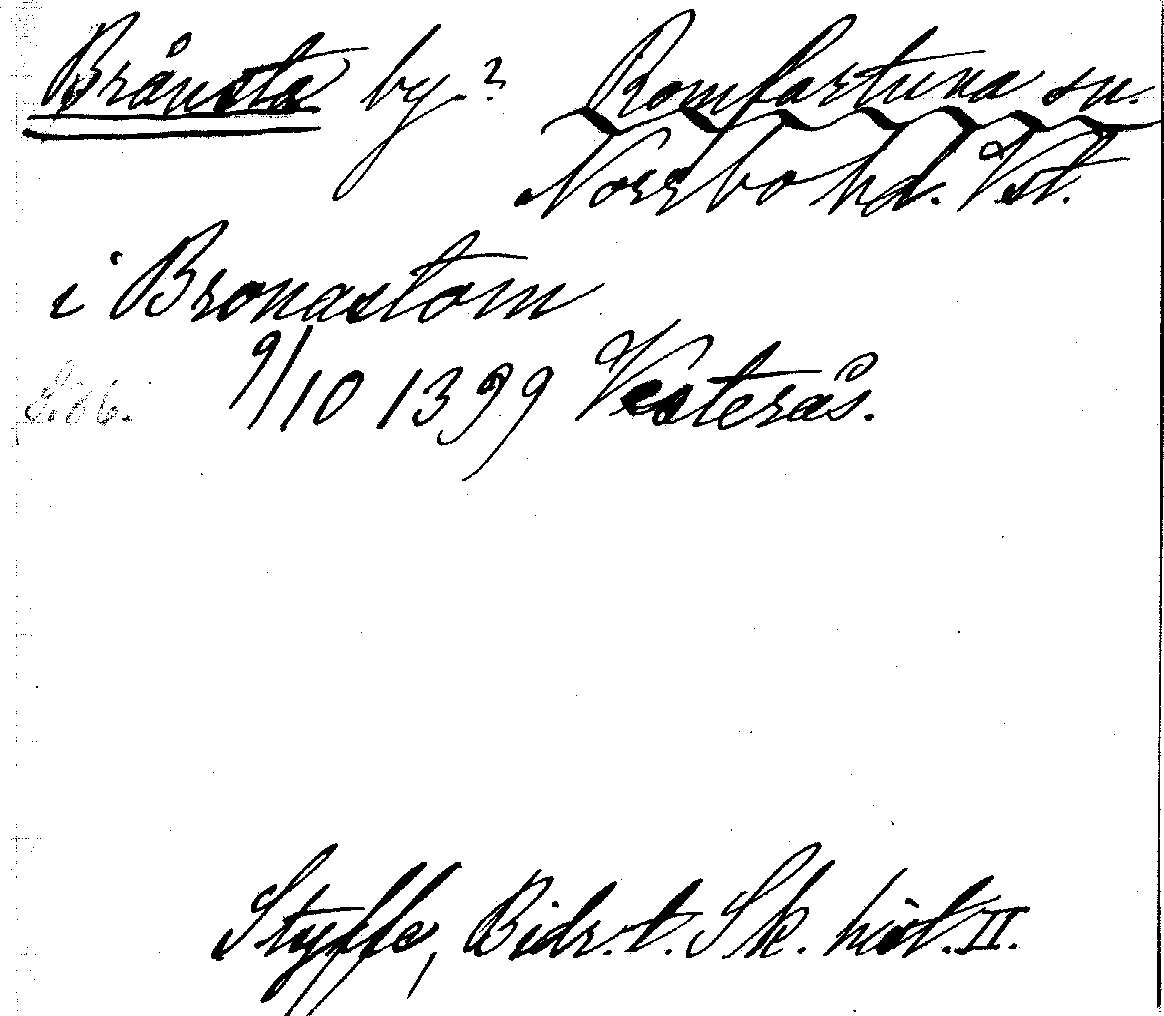 Brånsta by? Romfartuna sn.
Norrbo hd. Vst.
i Bronastom
9/10 1399 Vesterås.
Styffe, Bidr. t. Sk. hist. II.